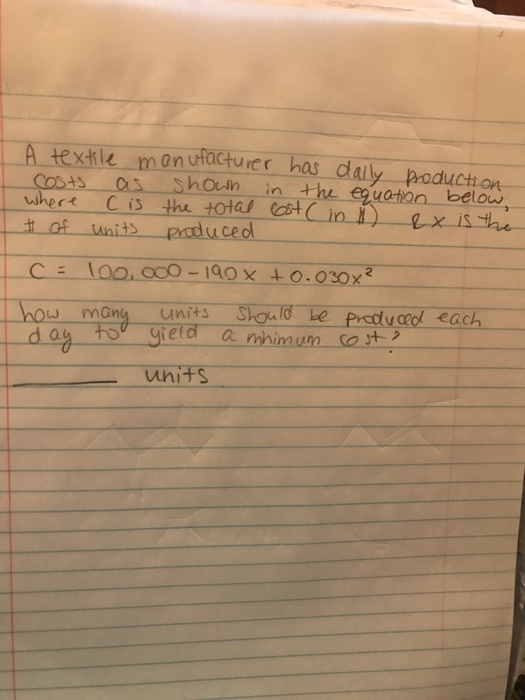 A textile manufacturer has daily production
costs as shown in the equation below,
where C is the total cost (in $) & x is the
# of units produced
C = 100,000 - 190x + 0.030x²
how many units should be produced each
day to yield a minimum cost?
______ units